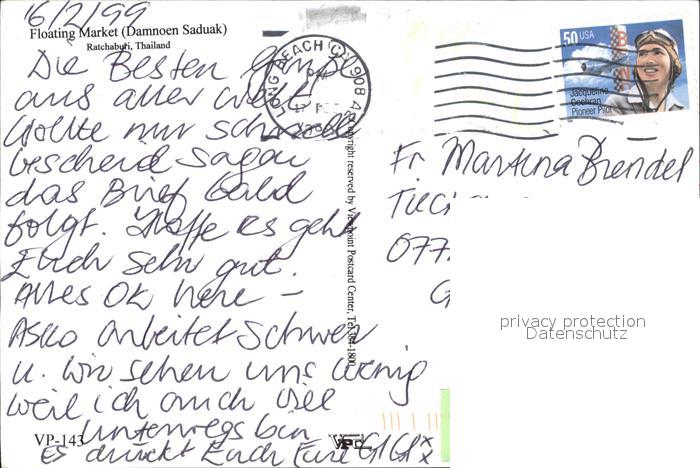 16/2/99
Floating Market (Damnoen Saduak)
Ratchaburi, Thailand
Die Besten Grüße
aus aller Welt
Wollte nur schnell
bescheid sagen
das Brief bald
folgt. Hoffe es geht
Euch sehr gut.
Alles OK here –
Asko arbeitet schwer
u. wir sehen uns wenig
weil ich auch viel
unterwegs bin
Es drückt Euch Eure GIGI xx
VP-143
VPC
Copyright reserved by Viewpoint Postcard Center, Te
LONG BEACH CA 908
PM
50 USA
Jacqueline
Cochran
Pioneer Pilot
Fr. Martina Brendel
077
G
privacy protection
Datenschutz